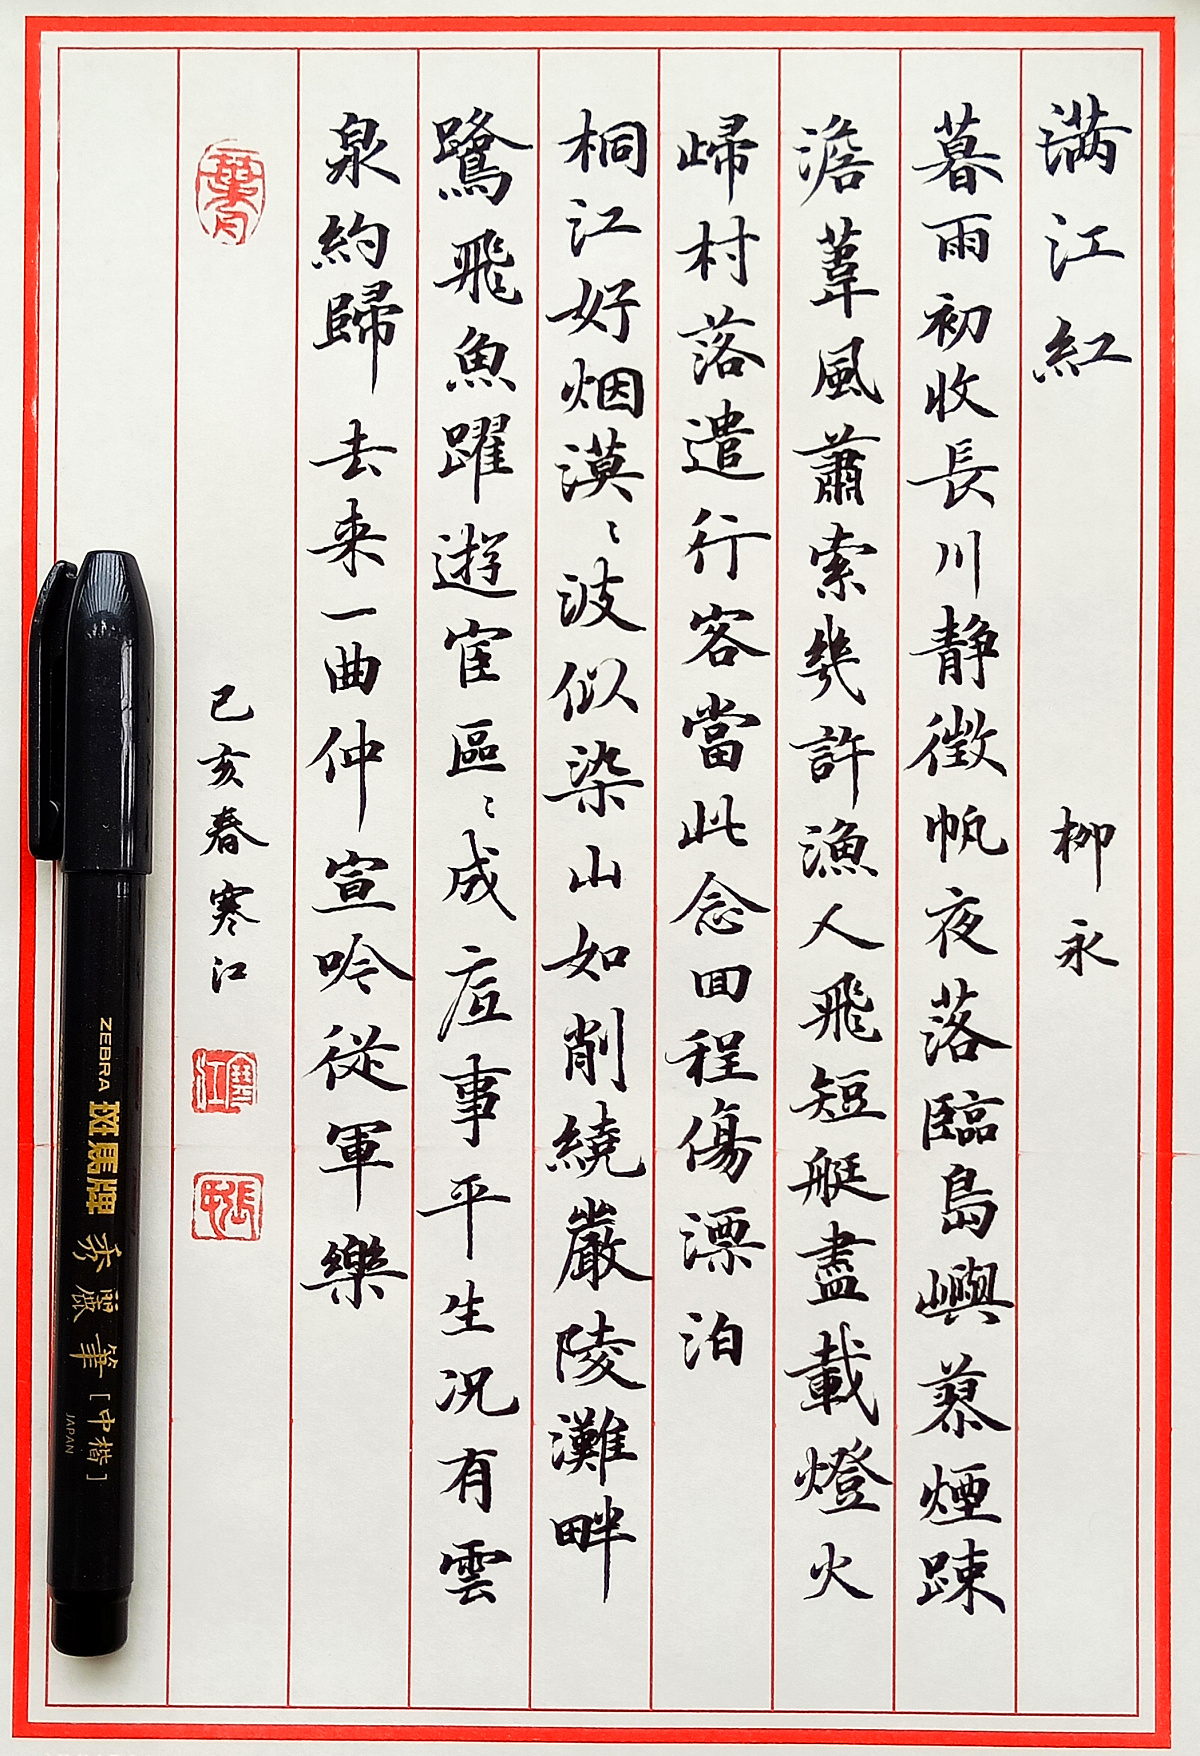 满江紅 柳永
暮雨初收長川静徵帆夜落臨島嶼蓼煙踈
澹葦風蕭索幾許漁人飛短艇盡載燈火
歸村落遣行客當此念回程傷漂泊
桐江好烟漠〻波似染山如削繞嚴陵灘畔
鷺飛魚躍遊宦區〻成底事平生况有雲
泉約歸去来一曲仲宣吟從軍樂
己亥春寒江
寒江
ZEBRA 斑馬牌 秀麗筆 [中楷]
JAPAN